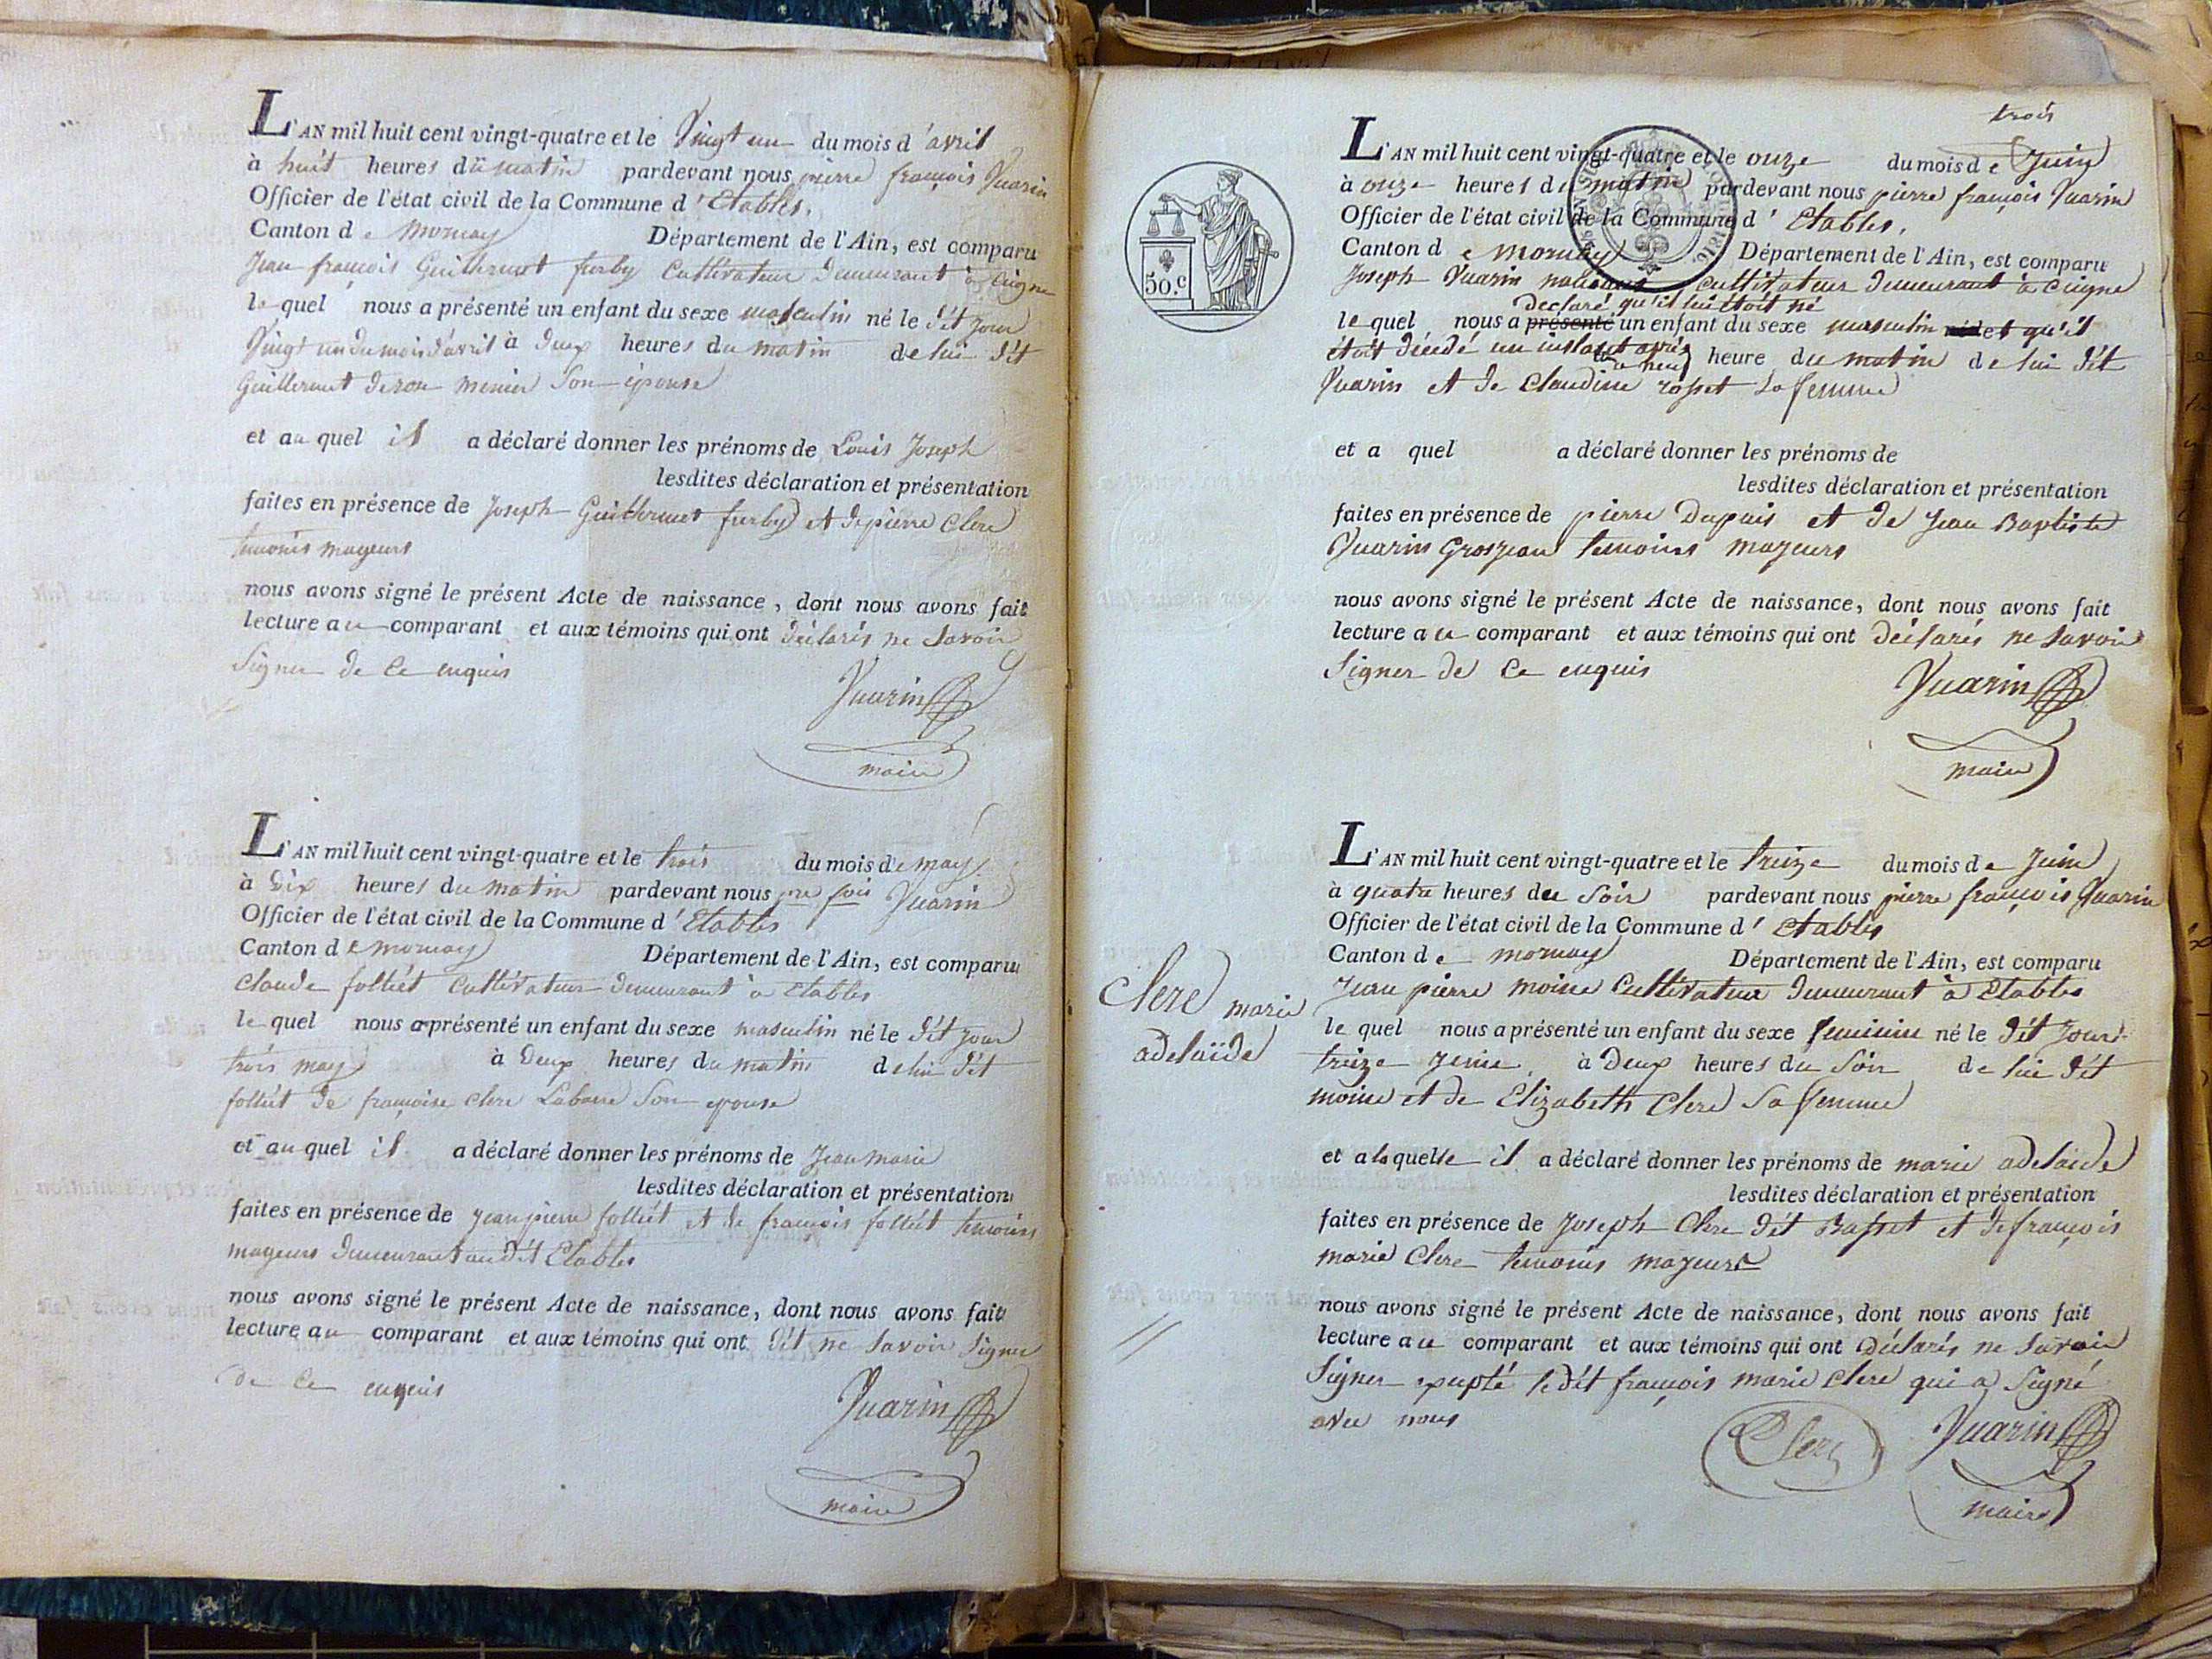 L'AN mil huit cent vingt-quatre et le Vingt un du mois d'avril
à huit heures du matin pardevant nous pierre françois Vuarin
Officier de l'état civil de la Commune d'Etables,
Canton de Mornay Département de l'Ain, est comparu
Jean françois Guillermet furby Cultivateur demeurant à Ceigne
le quel nous a présenté un enfant du sexe masculin né le dit jour
Vingt un du mois d'avril à deux heures du matin de lui dit
Guillermet de son épouse
et au quel il a déclaré donner les prénoms de Louis Joseph
lesdites déclaration et présentation
faites en présence de Joseph Guillermet furby et de pierre Clerc
temoins mageurs
nous avons signé le présent Acte de naissance, dont nous avons fait
lecture au comparant et aux témoins qui ont déclarés ne savoir
Signer de Ce enquis
Vuarin
maire
L'AN mil huit cent vingt-quatre et le trois du mois de may
à Dix heures du matin pardevant nous pre fois Vuarin
Officier de l'état civil de la Commune d'Etables
Canton de mornay Département de l'Ain, est comparu
Claude folliét Cultivateur demeurant à Etables
le quel nous a présenté un enfant du sexe masculin né le dit jour
trois may à Deux heures du matin de lui dit
folliét de françoise clerc Son epouse
et au quel il a déclaré donner les prénoms de Jean marie
lesdites déclaration et présentation
faites en présence de Jean pierre folliét et de françois folliét temoins
mageurs demeurant au dit Etables
nous avons signé le présent Acte de naissance, dont nous avons fait
lecture au comparant et aux témoins qui ont dit ne savoir Signer
de Ce enquis
Vuarin
maire
trois
50.c
L'AN mil huit cent vingt-quatre et le onze du mois de Juin
à onze heures du matin pardevant nous pierre françois Vuarin
Officier de l'état civil de la Commune d'Etables,
Canton de Mornay Département de l'Ain, est comparu
Joseph Vuarin cultivateur demeurant à Ceigne
declaré qu'il lui étoit né
le quel nous a présenté un enfant du sexe masculin et qu'il
étoit décédé un instant après à neuf heure du matin de lui dit
Vuarin et de Claudine rosset sa femme
et a quel a déclaré donner les prénoms de
lesdites déclaration et présentation
faites en présence de pierre Dupuis et de Jean Baptiste
Vuarin Grosjean temoins mageurs
nous avons signé le présent Acte de naissance, dont nous avons fait
lecture au comparant et aux témoins qui ont déclarés ne savoir
Signer de Ce enquis
Vuarin
maire
Clerc marie
adelaïde
L'AN mil huit cent vingt-quatre et le treize du mois de Juin
à quatre heures du Soir pardevant nous pierre françois Vuarin
Officier de l'état civil de la Commune d'Etables
Canton de mornay Département de l'Ain, est comparu
Jean pierre moine Cultivateur demeurant à Etables
le quel nous a présenté un enfant du sexe feminin né le dit jour
treize Juin à Deux heures du Soir de lui dit
moine et de Elizabeth Clerc Sa femme
et a la quelle il a déclaré donner les prénoms de marie adelaide
lesdites déclaration et présentation
faites en présence de Joseph Clerc dit Basset et de françois
marie Clerc temoins mageurs
nous avons signé le présent Acte de naissance, dont nous avons fait
lecture au comparant et aux témoins qui ont déclarés ne savoir
Signer expepté le dit françois marie Clerc qui a Signé
avec nous
Clerc Vuarin
maire